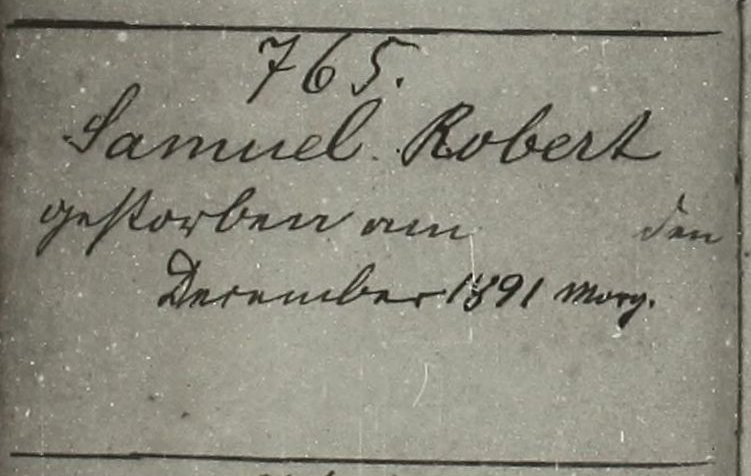 765.
Samuel Robert
gestorben am den
December 1891 Morg.